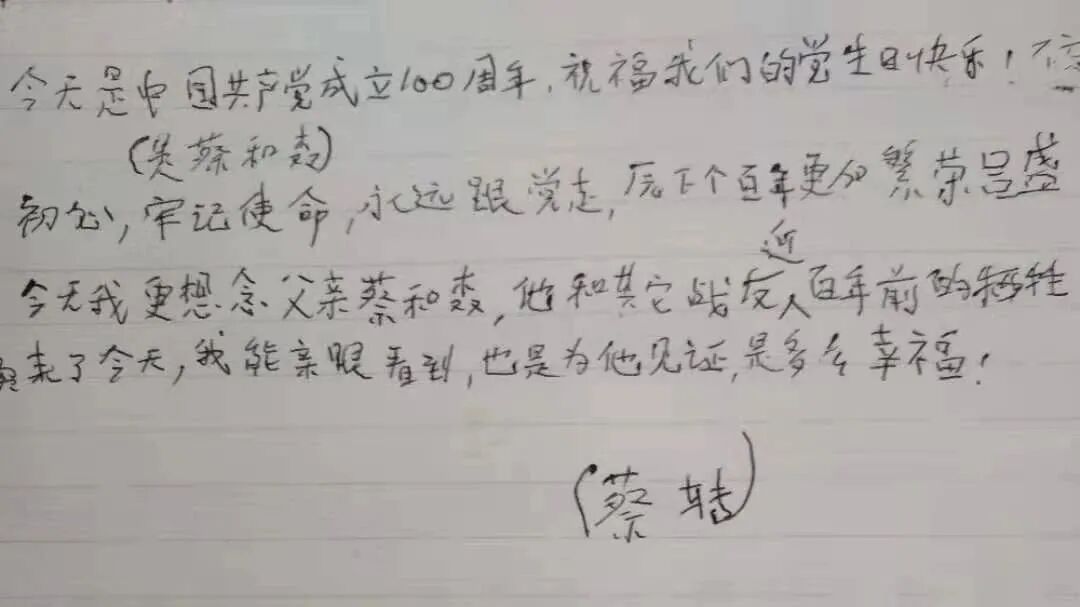 今天是中国共产党成立100周年,祝福我们的党生日快乐!不忘
(是蔡和森)
初心,牢记使命,永远跟党走,下个百年更加繁荣昌盛
近
今天我更想念父亲蔡和森,他和其它战友人百年前的牺牲
来了今天,我能亲眼看到,也是为他见证,是多么幸福!
(蔡转)